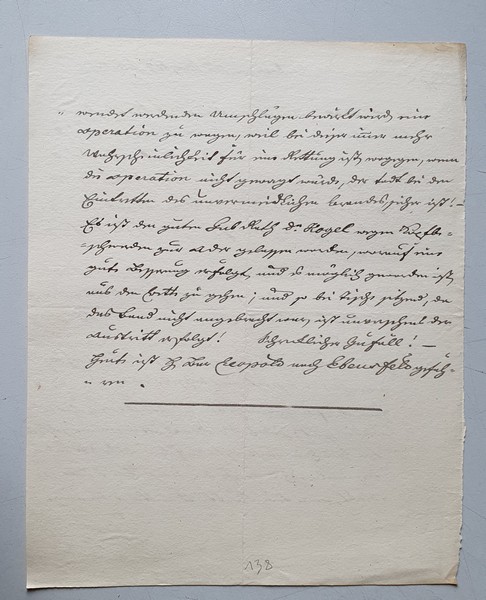 „ wendet werdenden Umschlägen bewirkt wird, eine
operation zu wagen, weil bei dieser immer mehr
Wahrscheinlichkeit für eine Rettung ist, wogegen, wenn
die operation nicht gewagt würde, der todt bei den
Eintretten des unvermeidlichen brandes sicher ist! –
Es ist dem guten Sub Rath dr Rogel wegen Kopfbe-
-schwerden zur Ader gelassen worden, worauf eine
gute Besserung erfolgt, und es möglich geworden ist,
aus dem bette zu gehen; und so bei tische sitzend, da
das band nicht angebracht war, ist unversehens der
Austritt erfolgt! Schrecklicher Zufall! –
Heute ist H. Leopold nach Ebensfeld gefah-
ren.
138